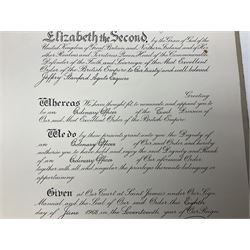 Elizabeth the Second, by the Grace of God of the
United Kingdom of Great Britain and Northern Ireland and of Her
other Realms and Territories Queen, Head of the Commonwealth,
Defender of the Faith, and Sovereign of the Most Excellent
Order of the British Empire to Our trusty and well beloved
Esquire
Greeting
Whereas We have thought fit to nominate and appoint you to
be an Ordinary Officer of the Civil Division of
Our said Most Excellent Order of the British Empire
We do by these presents grant unto you the Dignity of
an Ordinary Officer of Our said Order and hereby
authorise you to have hold and enjoy the said Dignity and Rank
of an Ordinary Officer of Our aforesaid Order
together with all and singular the privileges thereunto belonging or
appertaining.
Given at Our Court at Saint James's under Our Sign
Manual and the Seal of Our said Order this Eighth
day of June 1968 in the Seventeenth year of Our Reign